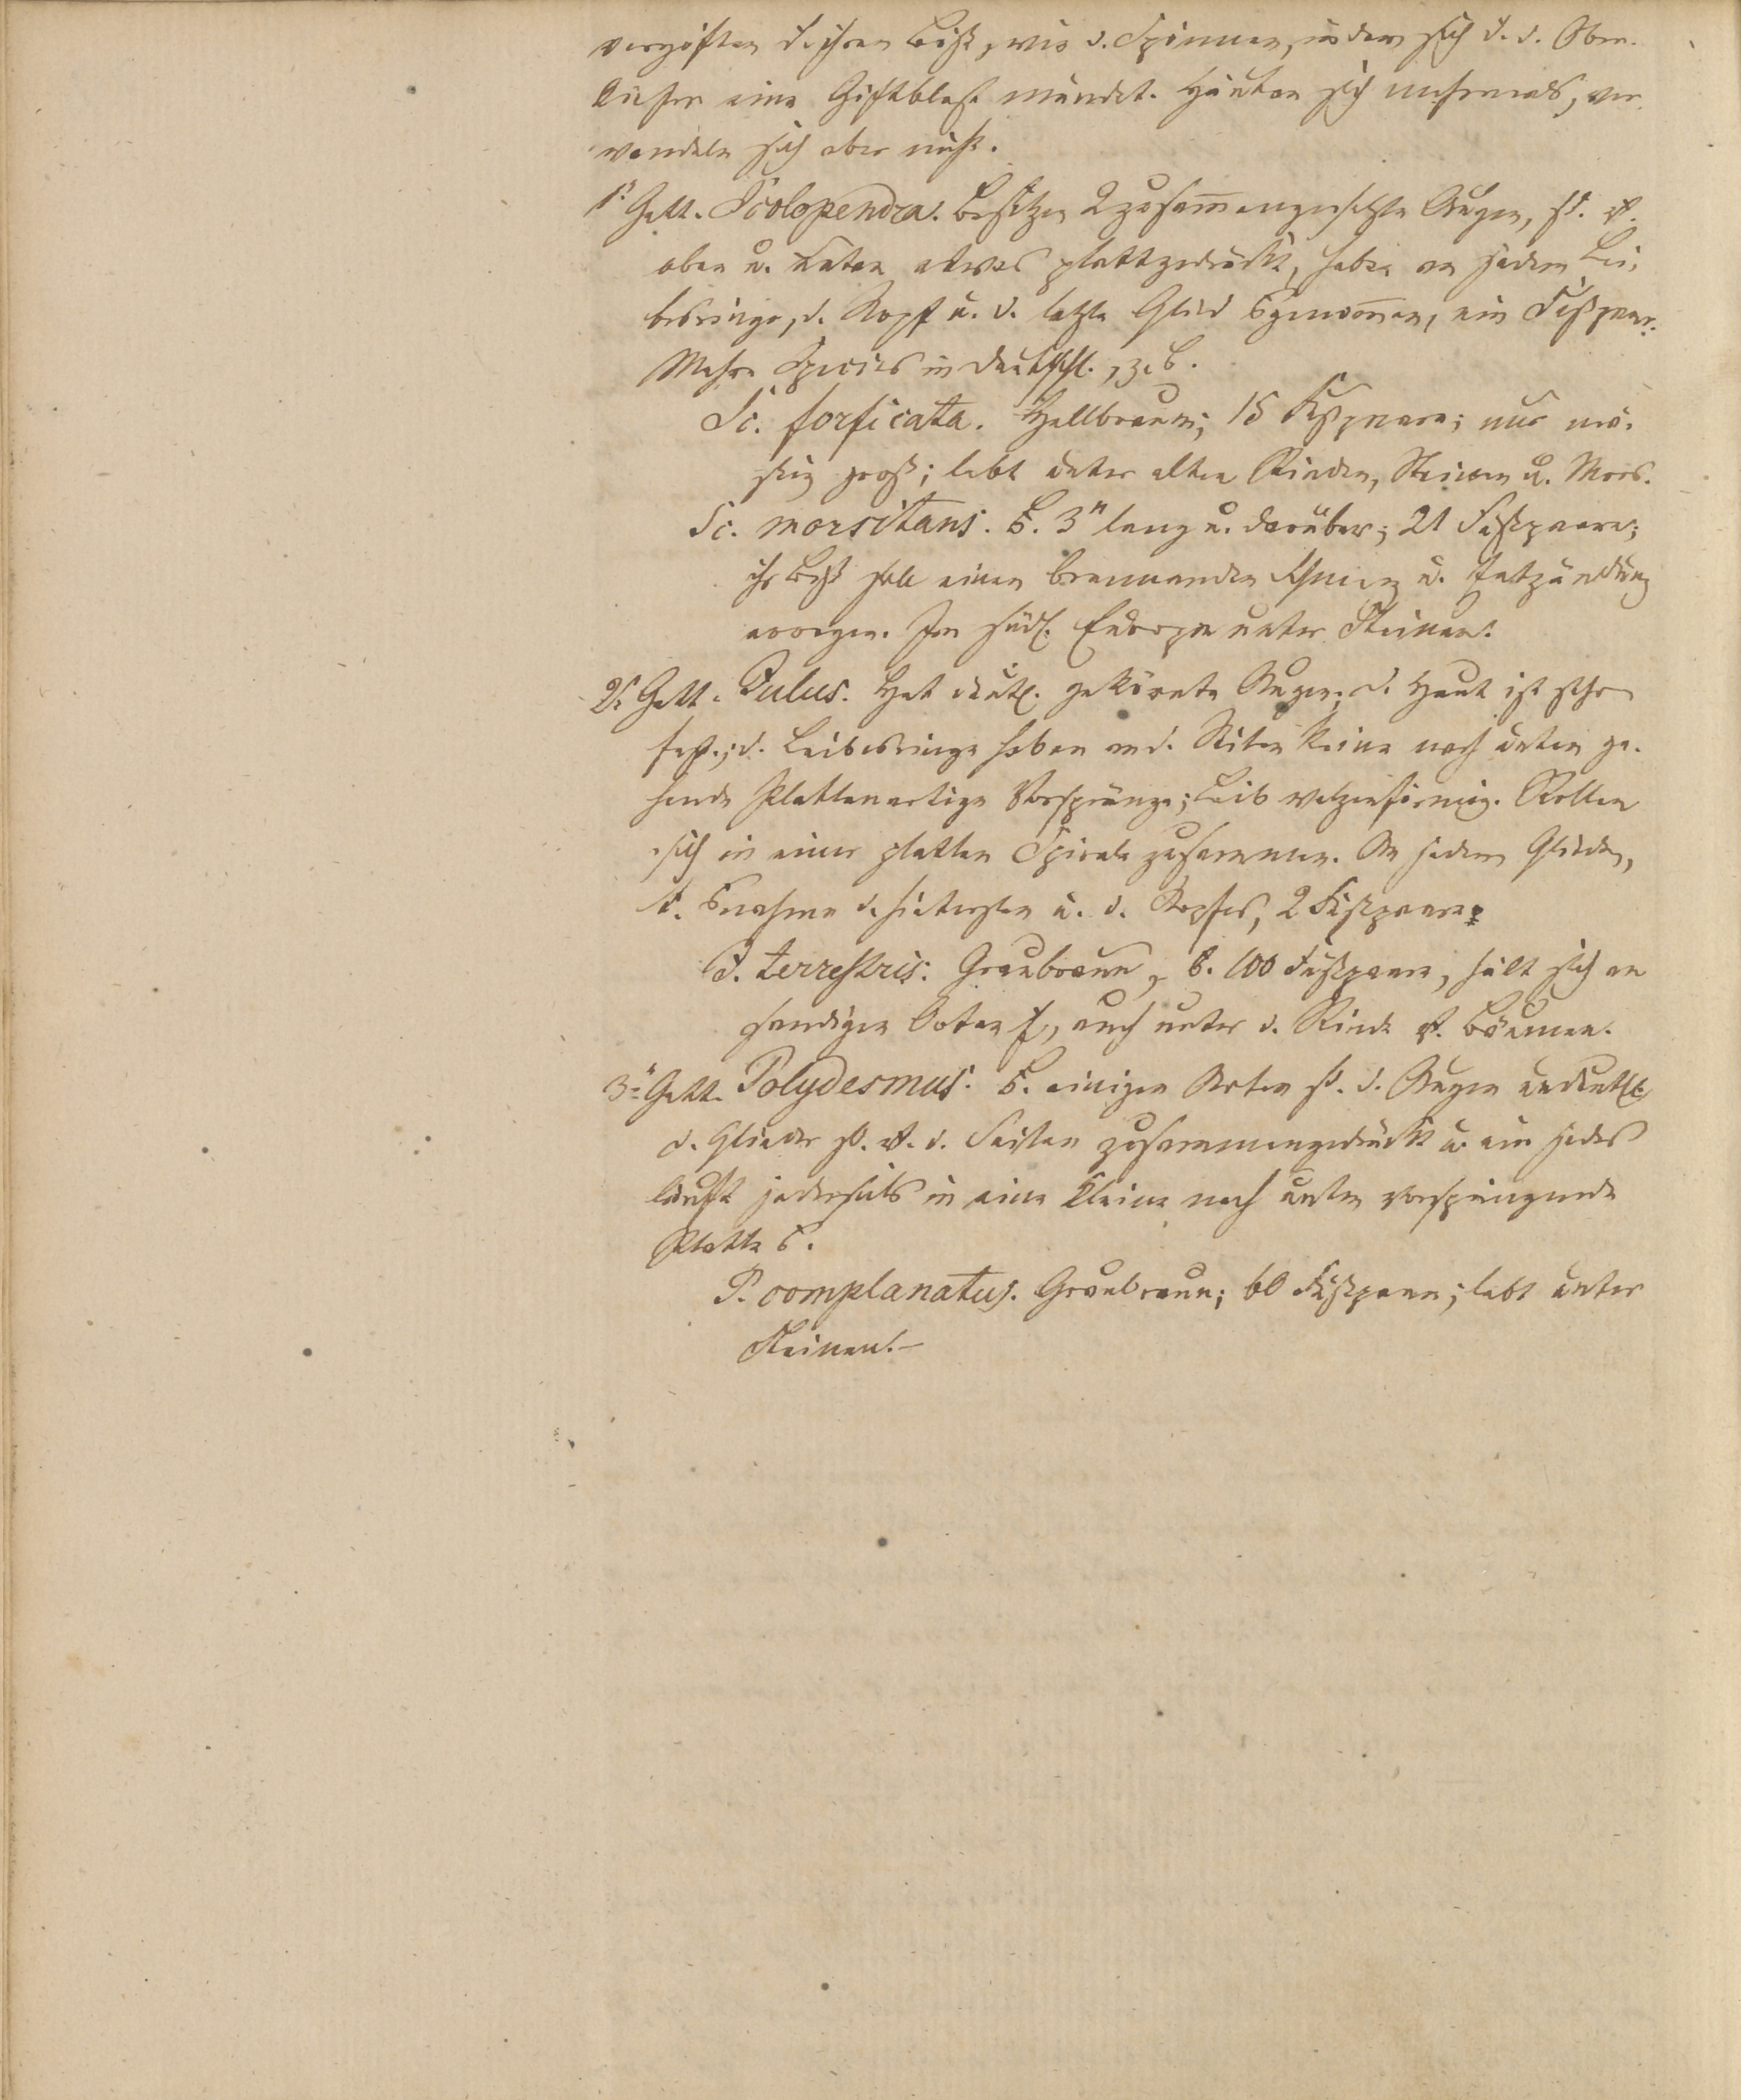 vergiften d. ihren Biß, wie d. Spinnen, indem sich d. d. Ober-
kiefer eine Giftblase mündet. Häuten sich mehrmals, ver-
wandeln sich aber nicht.
1. Gatt. Scolopendra. Besitzen 2 zusam̅engesetzte Augen, sd. v.
oben u. unten etwas plattgedrückt, haben an jedem Lei-
besringe, d. Kopf u. d. letzte Glied genom̅en, ein Fußpaar.
Mehre Species in Deutschl., z. B.
Sc. forficata. Hellbraun; 15 Fußpaare; nur mä-
ßig groß; lebt unter alten Rinden, Steinen u. Moos.
Sc. morsitans. B. 3" lang u. darüber; 21 Fußpaare;
ihr Biß soll einen brennenden Schmerz u. Entzündung
erregen. Im südl. Europa unter Steinen.
2. Gatt. Julus. Hat deutl. gekörnte Augen; d. Haut ist sehr
fest; d. Leibesringe haben an d. Seiten keine nach unten ge-
hende plattenartige Vorsprünge; Leib walzenförmig. Rollen
sich in einer platten Spirale zusammen. An jedem Gliede,
d. hintersten u. d. Kopfes, 2 Fußpaare.
J. terrestris. Graubraun, b. 100 Fußpaare, hält sich an
sandigen Orten f, auch unter d. Rinde v. Bäumen.
3. Gatt. Polydesmus. B. einigen Arten sd. d. Augen undeutl.
d. Glieder sd. v. d. Seiten zusammengedrückt u. ein jedes
läuft jederseits in eine kleine nach unten vorspringende
Platte
P. complanatus. Graubraun; 60 Fußpaare; lebt unter
Steinen. –